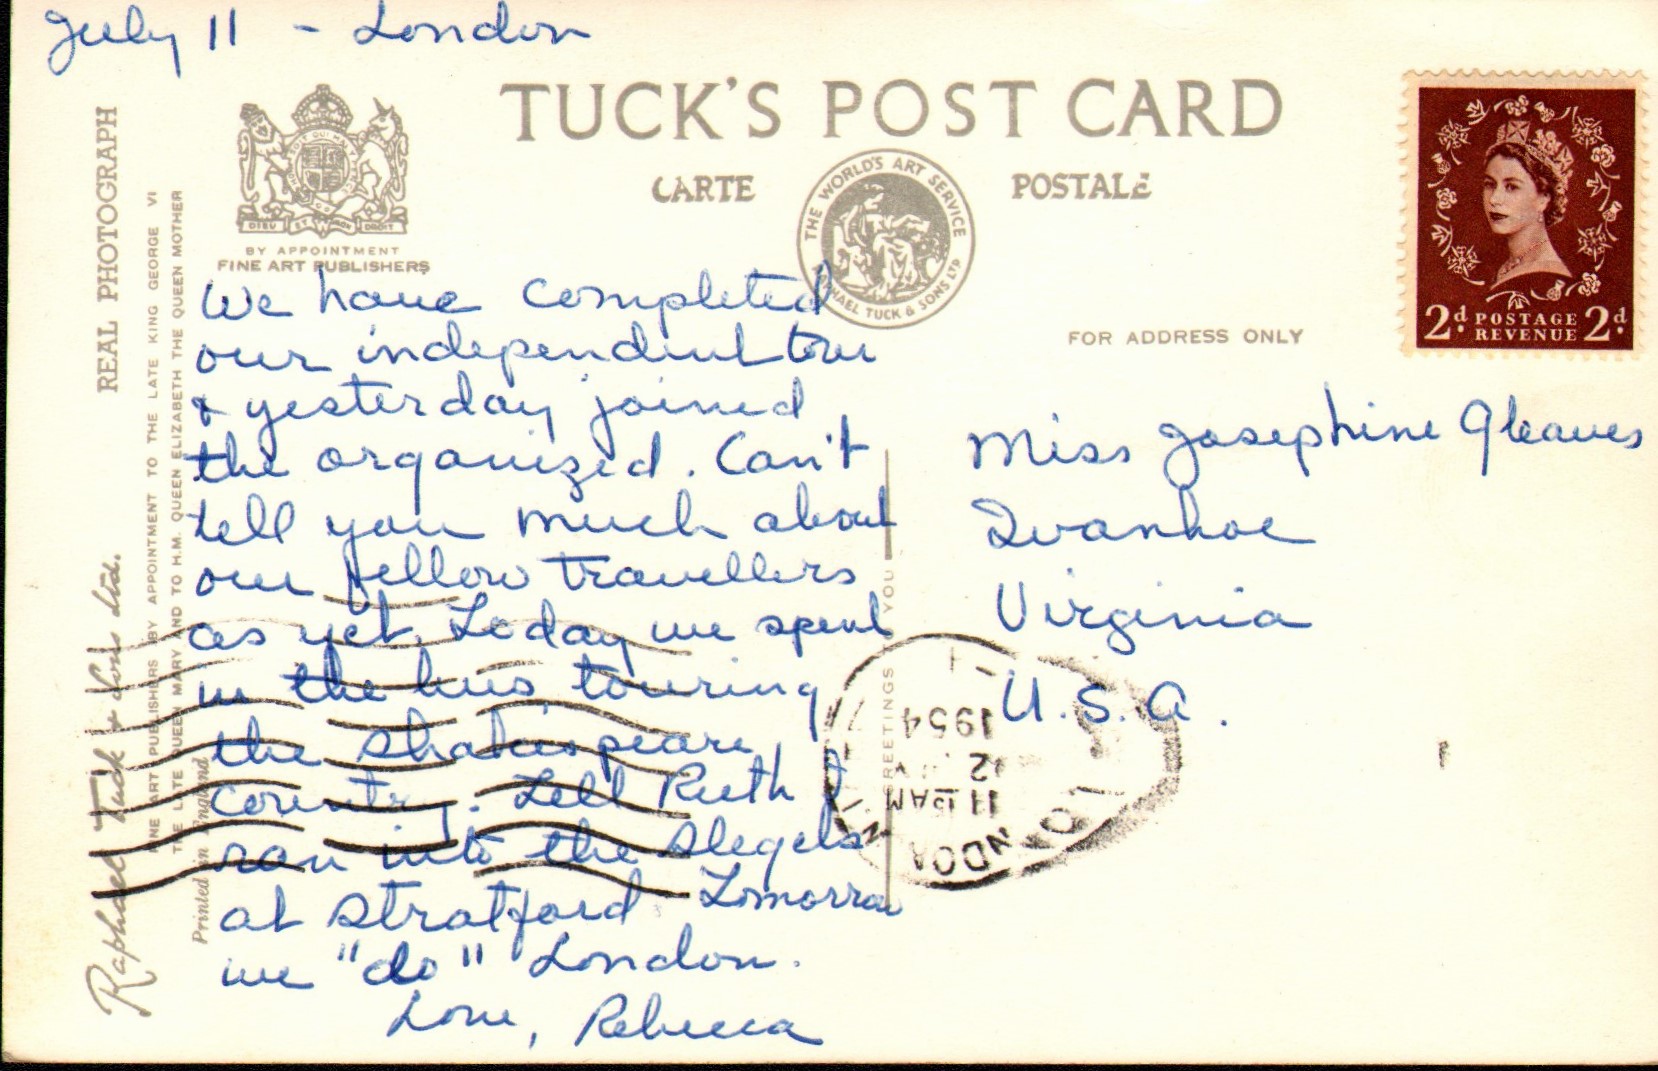 July 11 - London
TUCK'S POST CARD
CARTE POSTALE
THE WORLD'S ART SERVICE
RAPHAEL TUCK & SONS LTD
BY APPOINTMENT
FINE ART PUBLISHERS
DIEU ET MON DROIT
REAL PHOTOGRAPH
FINE ART PUBLISHERS BY APPOINTMENT TO THE LATE KING GEORGE VI
THE LATE QUEEN MARY AND TO H.M. QUEEN ELIZABETH THE QUEEN MOTHER
Raphael Tuck & Sons Ltd.
Printed in England
FOR ADDRESS ONLY
2d. POSTAGE REVENUE 2d.
We have completed
our independent tour
& yesterday joined
the organized. Can't
tell you much about
our fellow travellers
as yet. Today we spent
in the bus touring
the Shakespeare
country. Tell Ruth I
ran into the Slegels
at Stratford Tomorrow
we "do" London.
Love, Rebecca
Miss Josephine Gleaves
Ivanhoe
Virginia
U.S.A.
GREETINGS YOU
LONDON
11 15 AM
12
1954